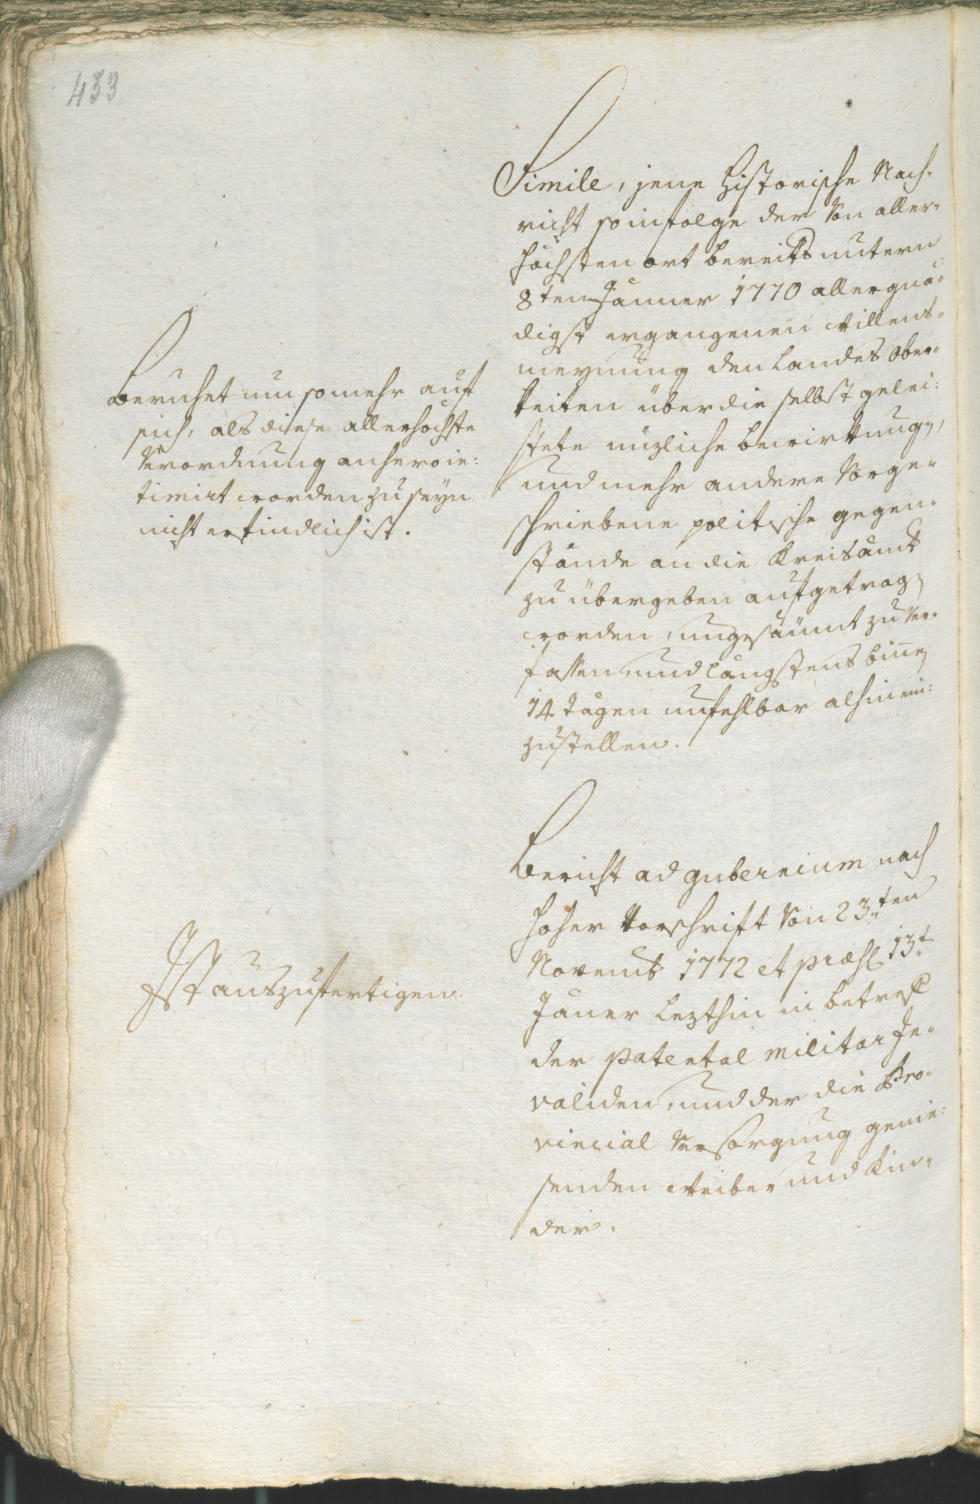 433
Simile, jene Historische Nach-
richt so infolge der von aller-
höchsten ort bereits untern
8ten Jänner 1770 allergnä-
digst ergangenen Willens-
meynung den Landes Obrig-
keiten über die selbst gelei-
stete nüzliche bewirkung,
und mehr andere Vorge-
schriebene politische gegen-
stände an die Kreisämt
zu übergeben aufgetrag
worden, ungesäumt zu ver-
fassen, und längstens binne
14 Tägen unfehlbar alhin ein-
zustellen.
Beruhet um so mehr auf
sich, als diese allerhöchste
Verordnung anhero in-
timirt worden zu seyn
nicht erfindlich ist.
Bericht ad gubernium nach
hoher Vorschrift von 23ten
Novemb 1772 et præs 13t
Jäner lezthin in betref
der Patental militar In-
validen, und der die Pro-
vincial Versorgung genie-
senden Weiber und Kin-
der.
Ist auszufertigen.